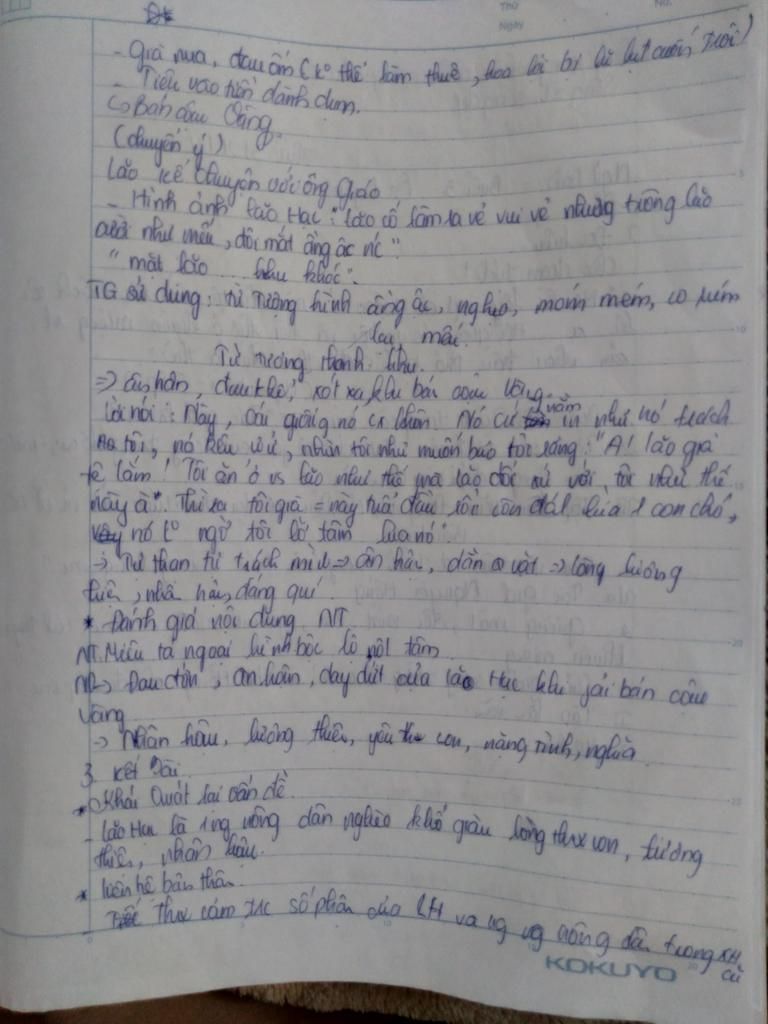 Thứ
No.
Ngày
- Già nua, đau ốm (k° thể làm thuê, hoa lợi bị lũ lụt cuốn trôi)
- Tiêu vào tiền dành dụm.
↳ Bán cậu Vàng
(chuyển ý)
Lão kể chuyện với ông Giáo
- Hình ảnh Lão Hạc: "lão cố làm ra vẻ vui vẻ nhưng trông lão
cười như mếu, đôi mắt ầng ậc nc".
"mặt lão ... hu khóc".
TG sử dụng: từ tượng hình ầng ậc, nghẹo, móm mém, co rúm
Từ tượng thanh hu.
=> ân hận, đau khổ, xót xa khi bán cậu Vàng
Lời nói: Này, cái giống nó cx khôn. Nó cứ nằm in như nó trách
tôi, nó kêu ư ử, nhìn tôi như muốn bảo tôi rằng: "A! lão già
tệ lắm! Tôi ăn ở vs lão như thế mà lão đối xử với tôi như thế
này à". Thì ra tôi già = này tuổi đầu rồi còn đánh lừa 1 con chó,
nó k° ngờ tôi lỡ tâm lừa nó".
-> Tự than tự trách mình => ân hận, dằn vặt => lòng lương
thiện, nhân hậu, đáng quí.
* Đánh giá nội dung NT
NT. Miêu tả ngoại hình bộc lộ nội tâm
ND-> Đau đớn, ân hận, day dứt của lão Hạc khi fải bán cậu
Vàng
-> Nhân hậu, lương thiện, yêu th con, nặng tình, nghĩa
3. Kết bài
* Khái quát lại vấn đề
- Lão Hạc là 1 ng nông dân nghèo khổ giàu lòng thư con, lương
thiện, nhân hậu.
* Liên hệ bản thân
- thư cảm xúc số phận của LH và ng ng nông dân trong XH
cũ
KOKUYO